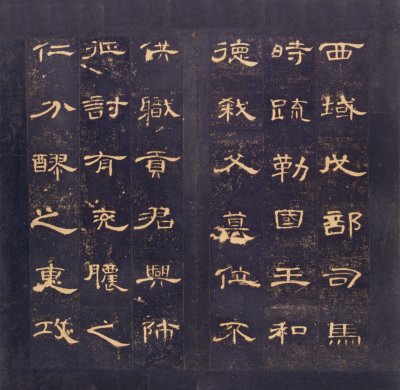 西域戊部司馬
時疏勒國王和
德弒父篡位不
供職貢君興師
征討有兗膿之
仁分醪之惠攻